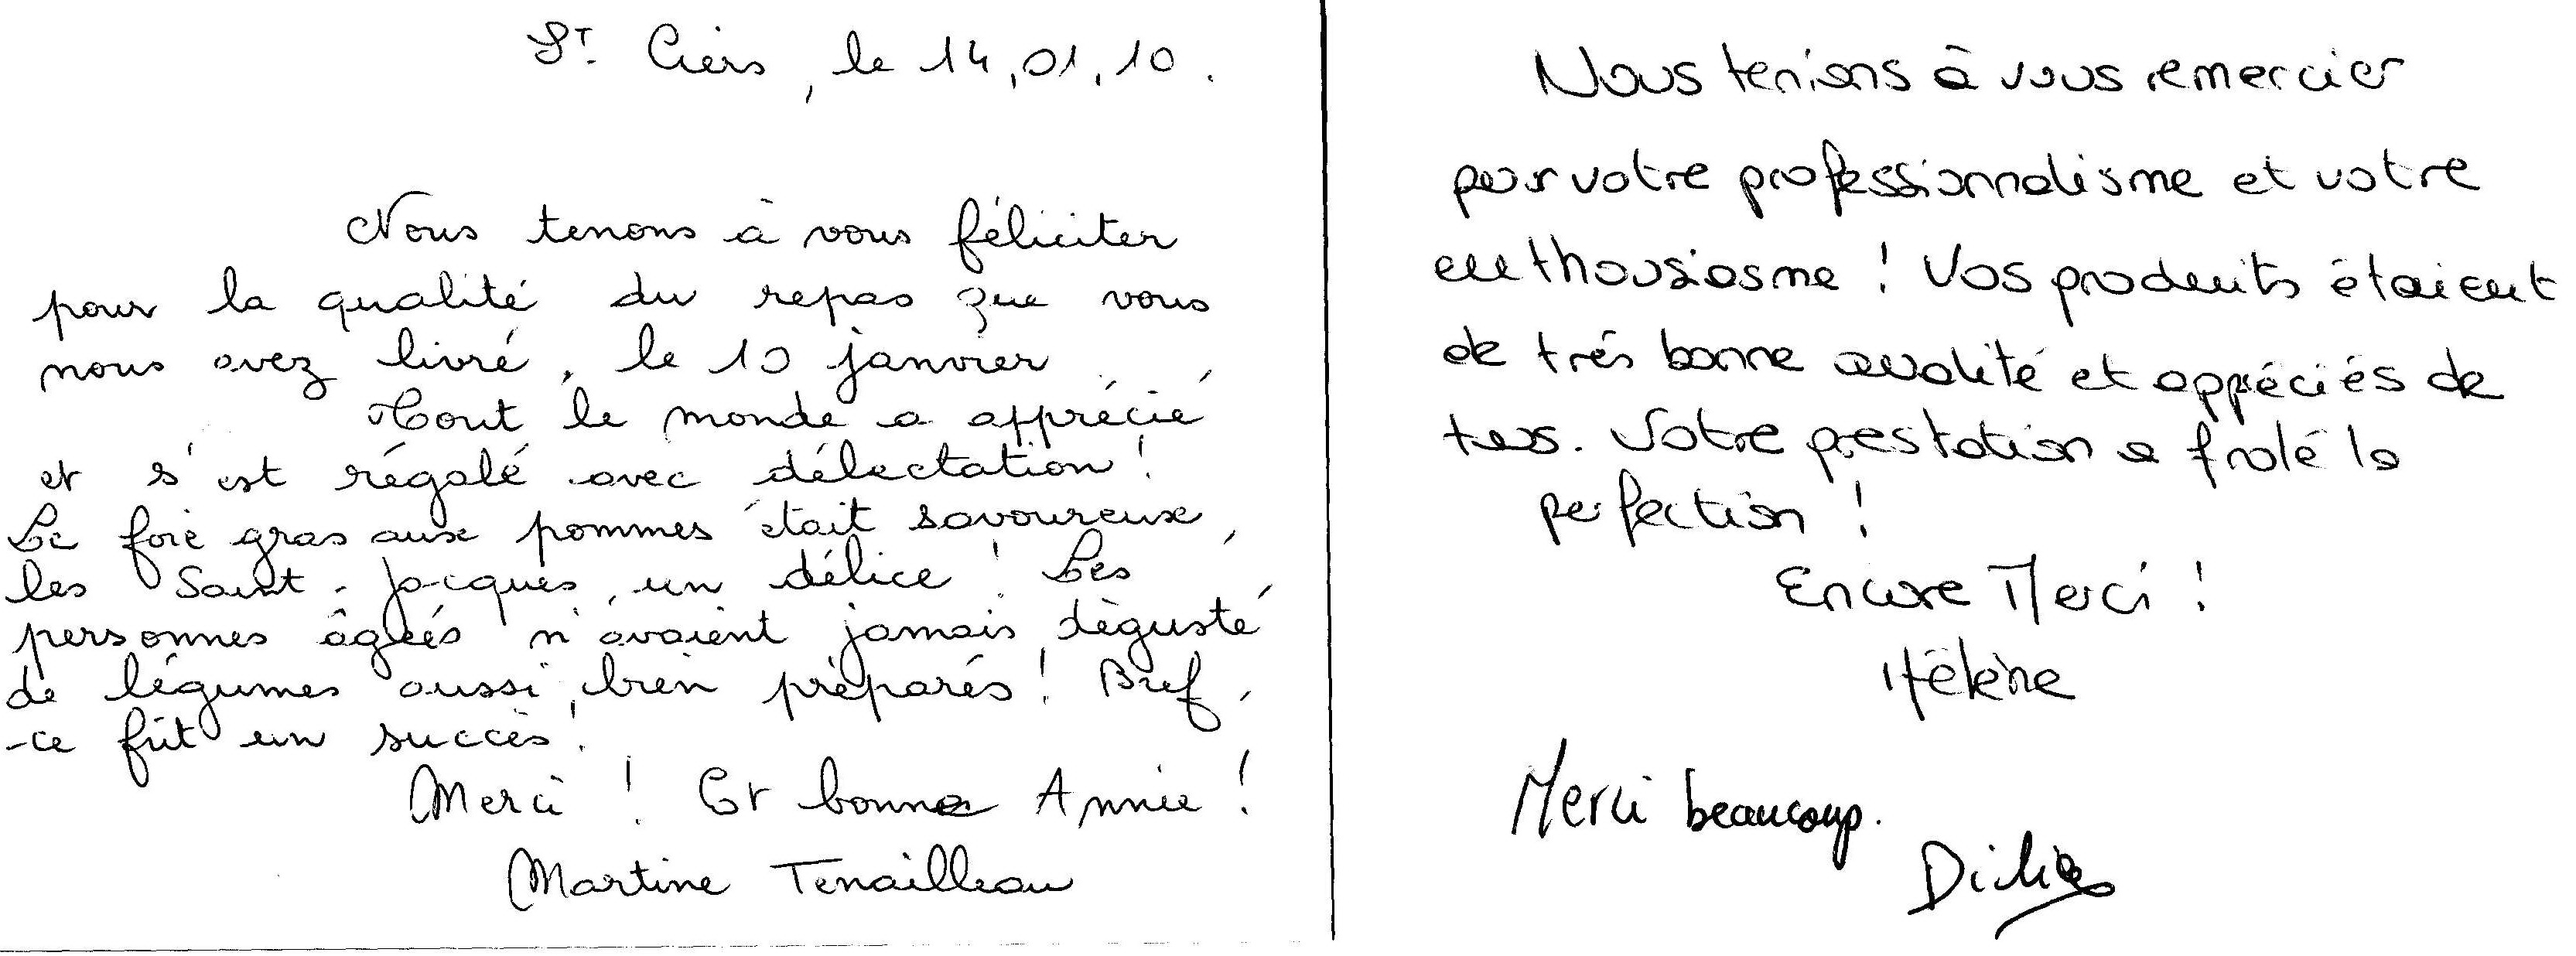 St. Ciers, le 14,01,10.
Nous tenons à vous féliciter
pour la qualité du repas que vous
nous avez livré, le 10 janvier.
Tout le monde a apprécié
et s'est régalé avec délectation !
Le foie gras aux pommes était savoureux,
les Saint-Jacques, un délice ! Les
personnes âgées n'avaient jamais dégusté
de légumes aussi bien préparés ! Bref,
-ce fût un succès !
Merci ! Et bonne Année !
Martine Tenailleau
Nous tenions à vous remercier
pour votre professionnalisme et votre
enthousiasme ! Vos produits étaient
de très bonne qualité et appréciés de
tous. Votre prestation a frolé la
perfection !
Encore Merci !
Hélène
Merci beaucoup.